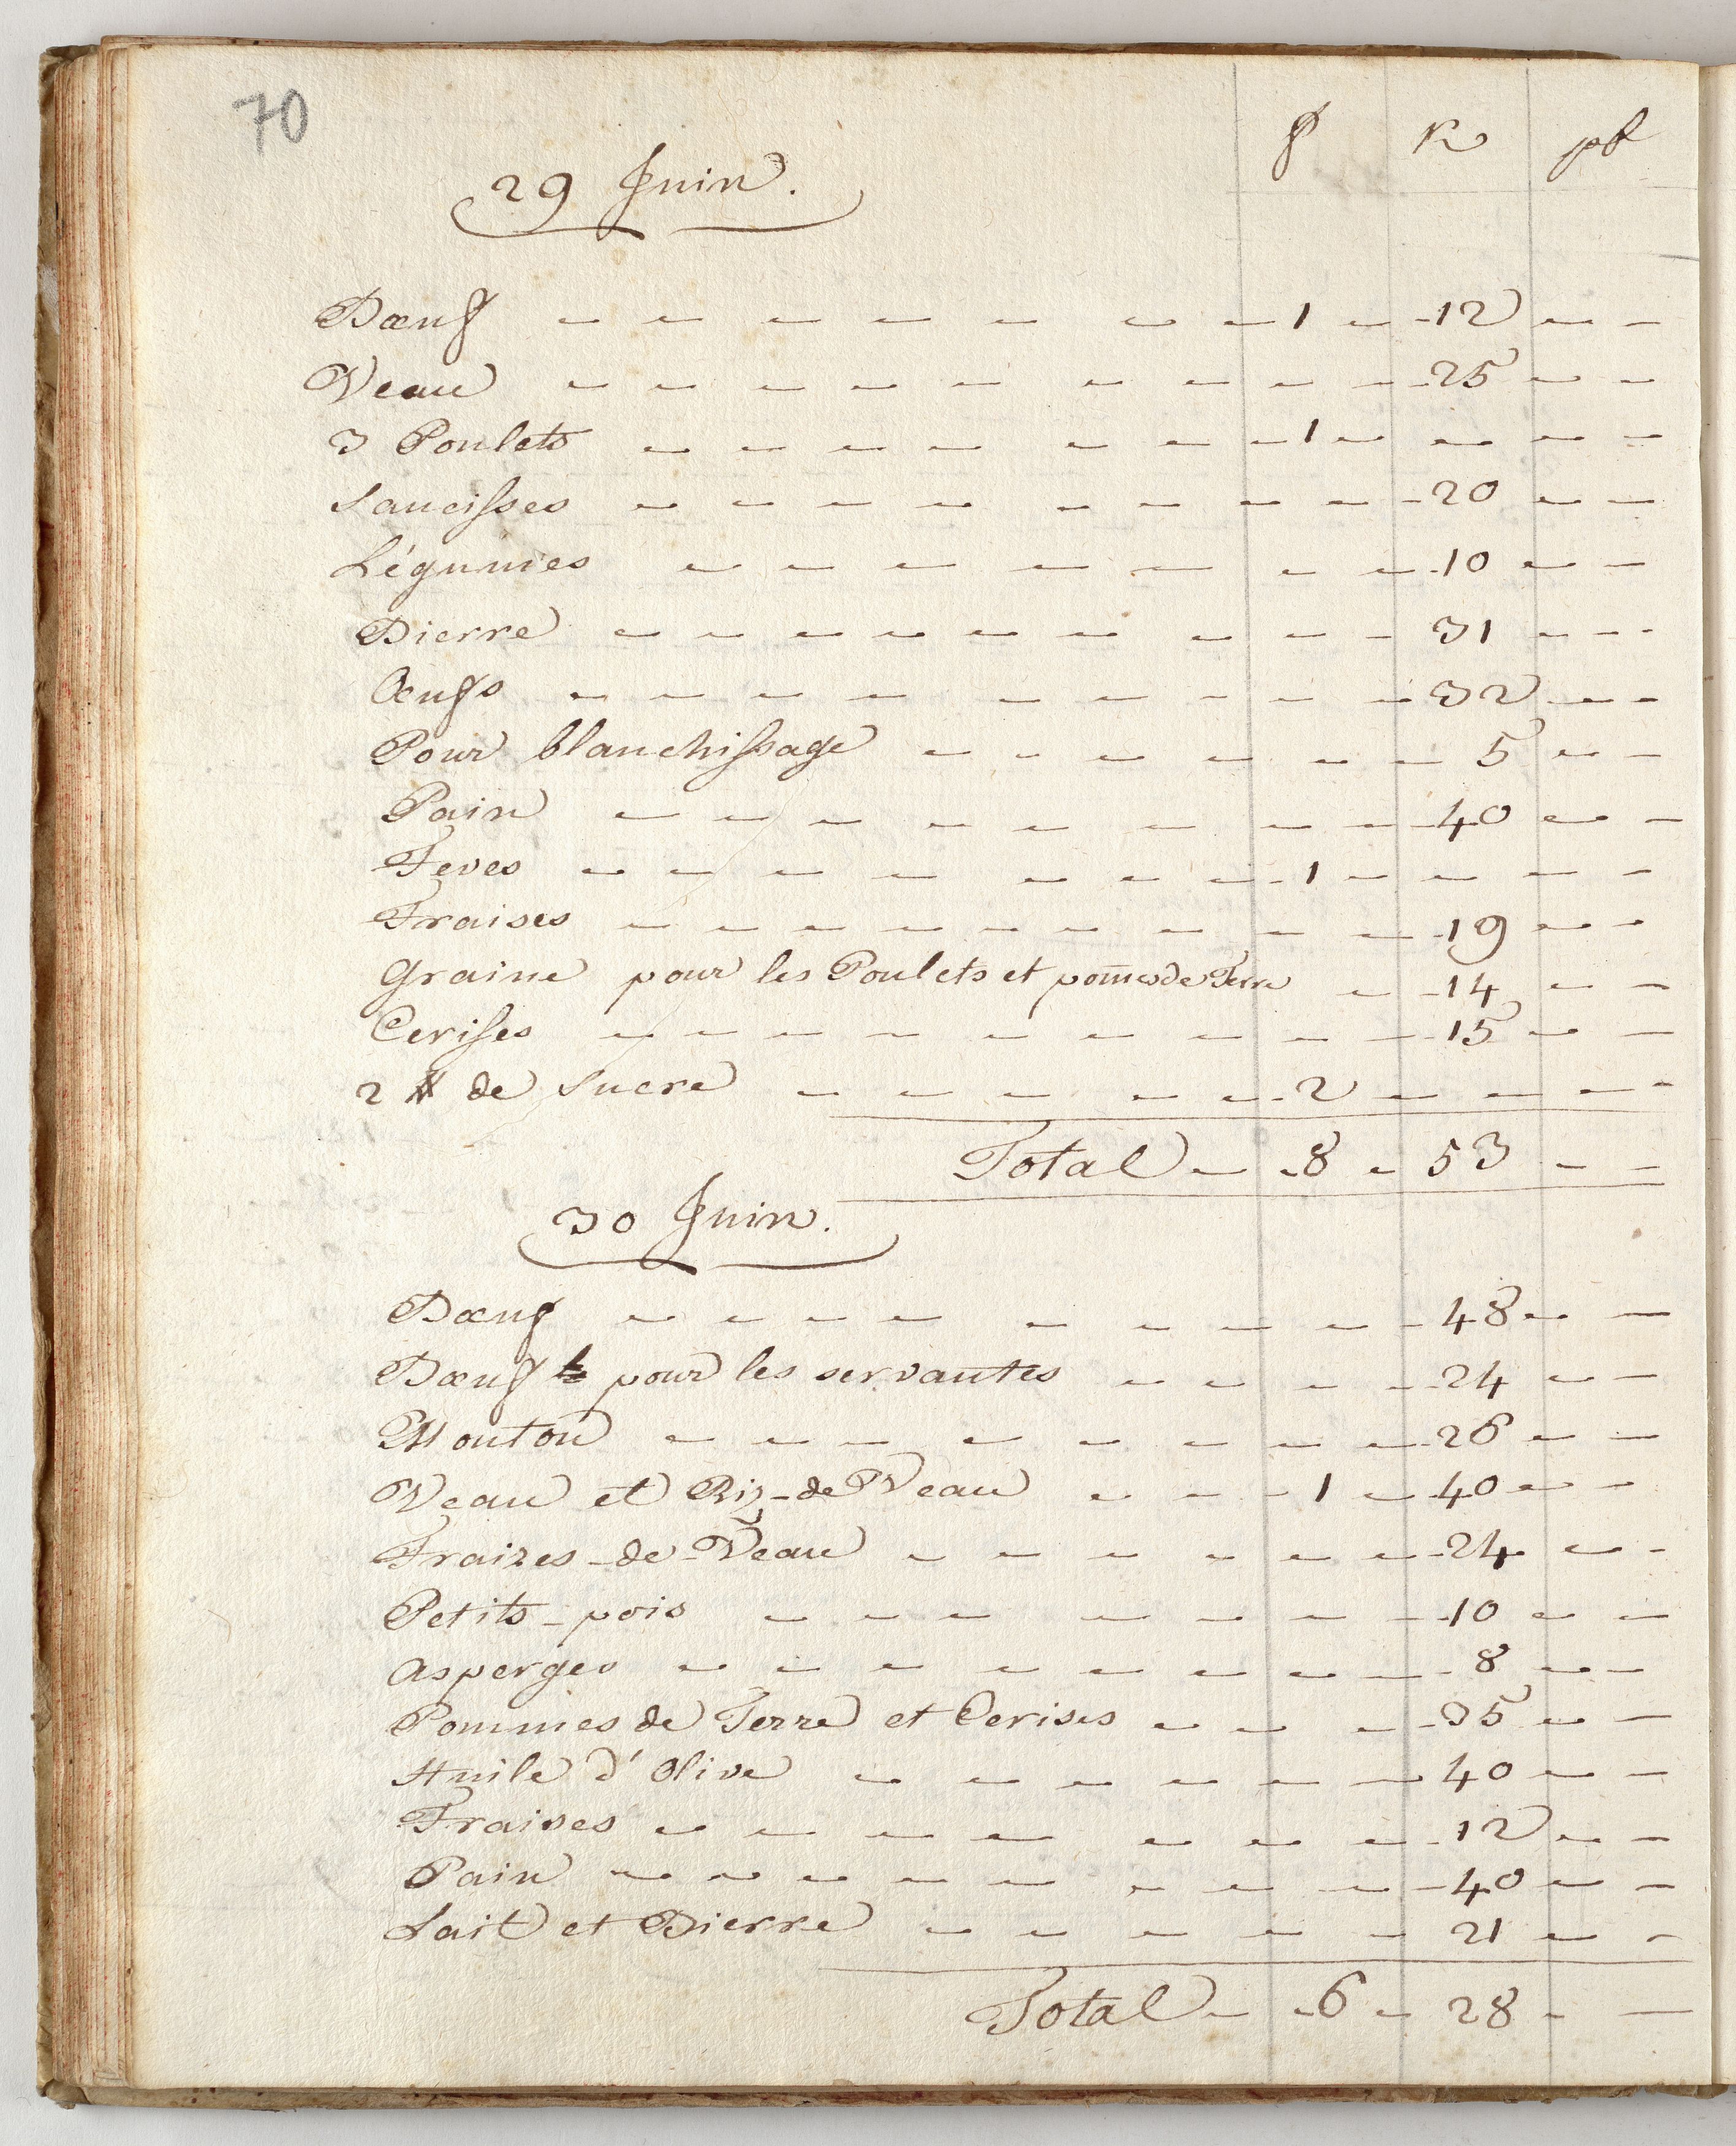 70
fl kr pf
29 Juin.
Bœuf 1 12
Veau 25
3 Poulets 1
Saucisses 20
Légumes 10
Bierre 31
Œufs 32
Pour blanchissage 5
Pain 40
Feves 1
Fraises 19
Graine pour les Poulets et pom̄es de Terre 14
Cerises 15
2 ℔ de Sucre 2
Total 8 53
30 Juin.
Bœuf 48
Bœuf pour les servantes 24
Mouton 26
Veau et Riz-de Veau 1 40
Fraizes-de-Veau 24
Petits-pois 10
asperges 8
Pommes de Terre et Cerises 35
Huile d'Olive 40
Fraises 12
Pain 40
Lait et Bierre 21
Total 6 28